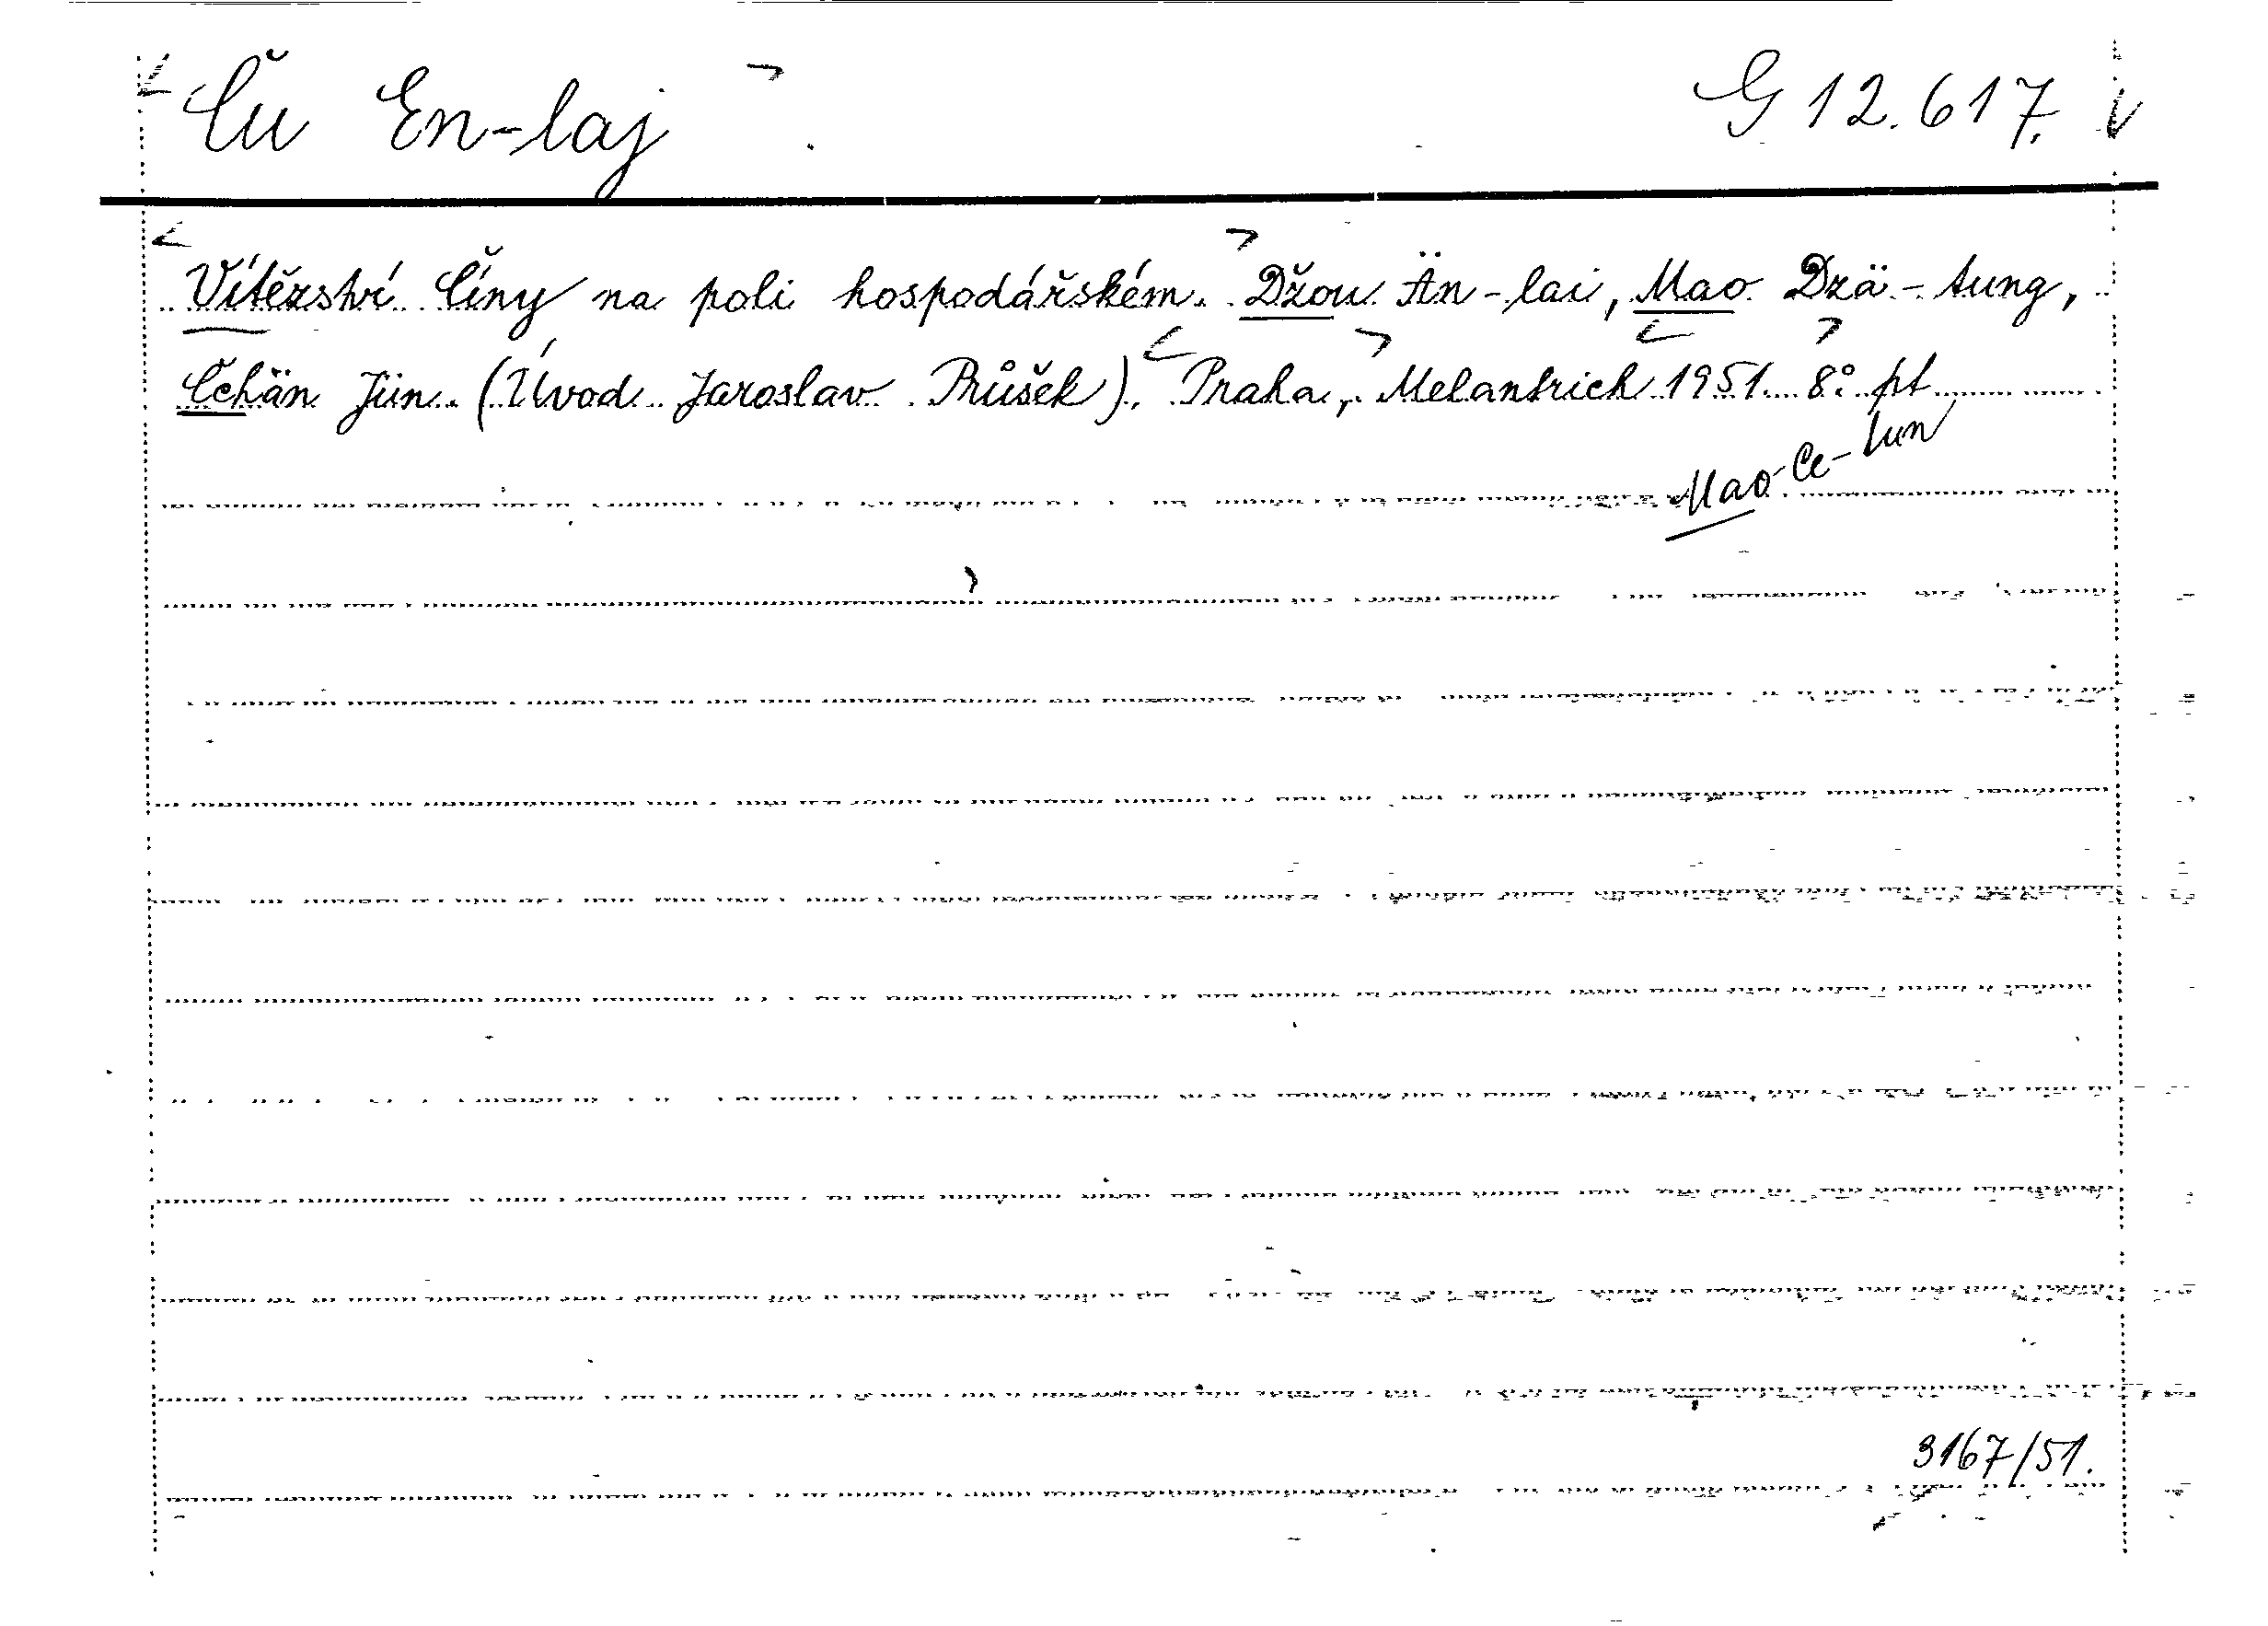 Ču En-laj G 12.617.
Vítězství Číny na poli hospodářském. Džou Än-lai, Mao Dzä-tung,
Čchän Jün. (Úvod Jaroslav Průšek). Praha, Melantrich 1951. 8° pt
Mao-Ce-tun
3167/51.